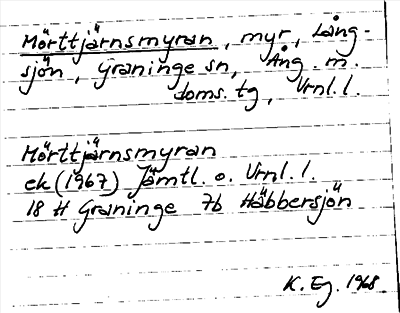 Mörttjärnsmyran, myr, Lång-
sjön, Graninge sn, Ång. m.
doms. tg, Vrnl. l.
Mörttjärnsmyran
ek (1967) Jämtl. o. Vrnl. l.
18 H Graninge 7b Häbbersjön
K. Eg. 1968